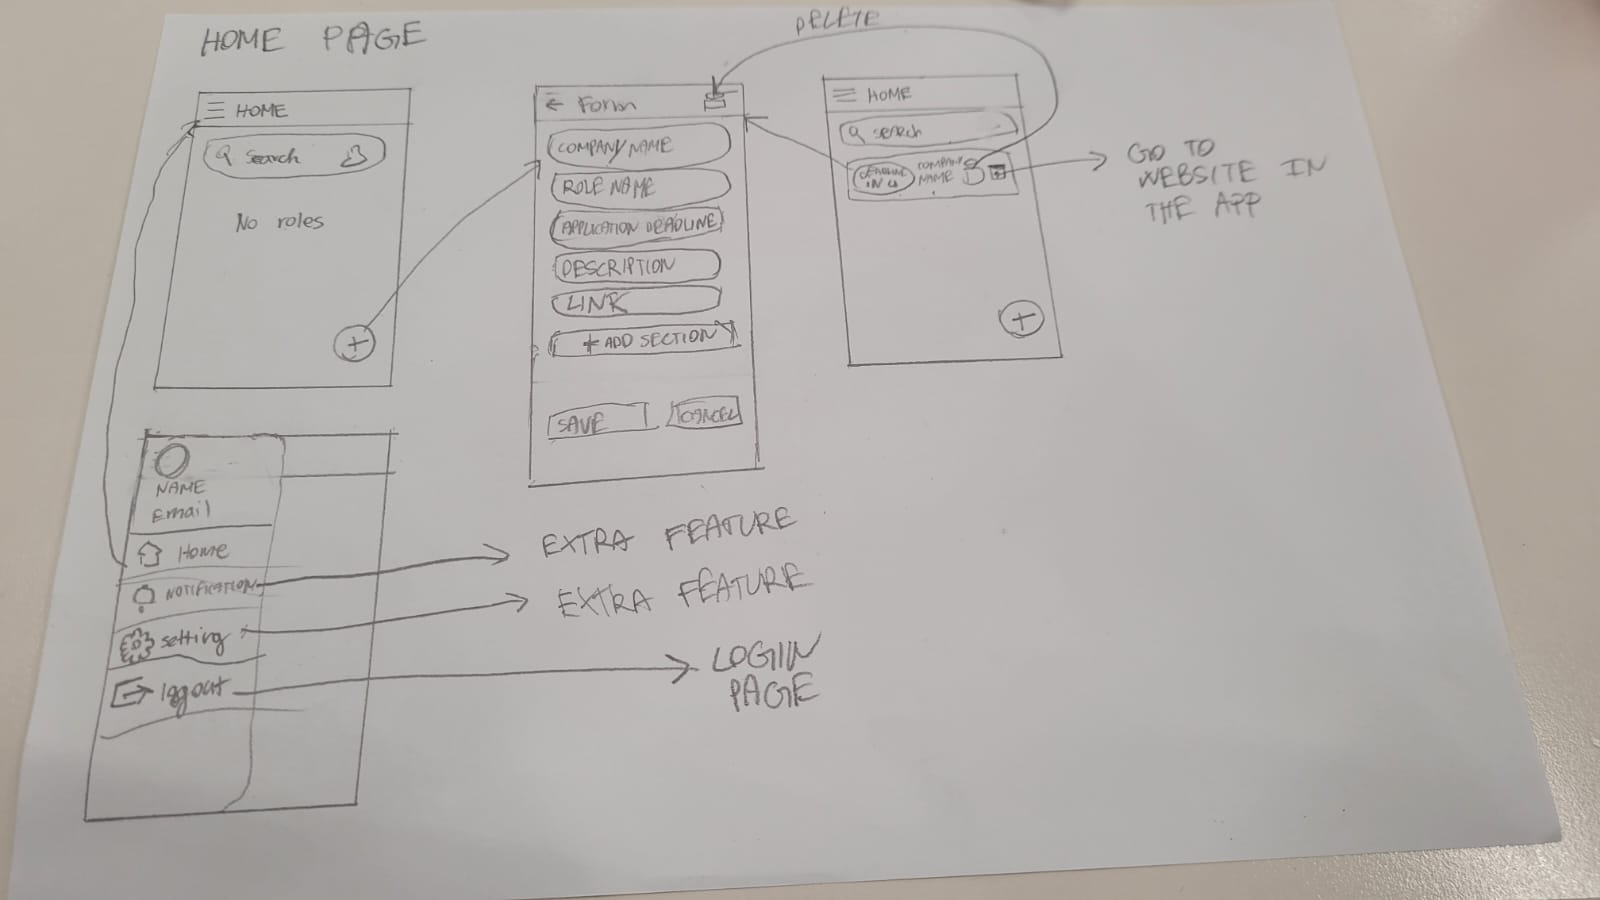 HOME PAGE
DELETE
HOME
search
No roles
+
Form
COMPANY NAME
ROLE NAME
APPLICATION DEADLINE
DESCRIPTION
LINK
+ ADD SECTION
SAVE
CANCEL
HOME
search
DEADLINE
IN
COMPANY
NAME
+
GO TO
WEBSITE IN
THE APP
NAME
Email
Home
NOTIFICATION
setting
logout
EXTRA FEATURE
EXTRA FEATURE
LOGIN
PAGE